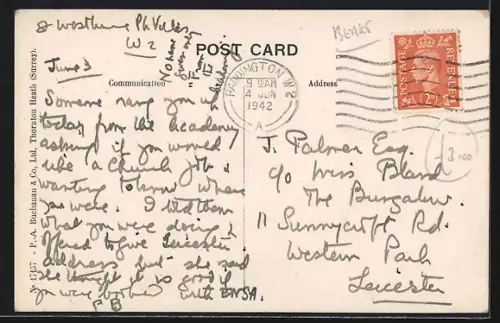 8 Westbourne Pk Villas
W2
June 3
No name given only "From the Academy"
POST CARD
Communication
Address
PADDINGTON. W.2
9 15AM
4 JUN
1942
A
POSTAGE
REVENUE
2D
Someone rang you up
today from the Academy
asking if you would
like a Church job &
wanting to know where
you were. I told them
what you were doing &
offered to give Leicester
address but she said
she thought it no good if
you were booked with ENSA.
PB
J. Palmer Esq.
c/o Miss Bland
The Bungalow
11 Sunnycroft Rd.
Western Park
Leicester
N 17457 - P.A. Buchanan & Co., Ltd, Thornton Heath (Surrey).